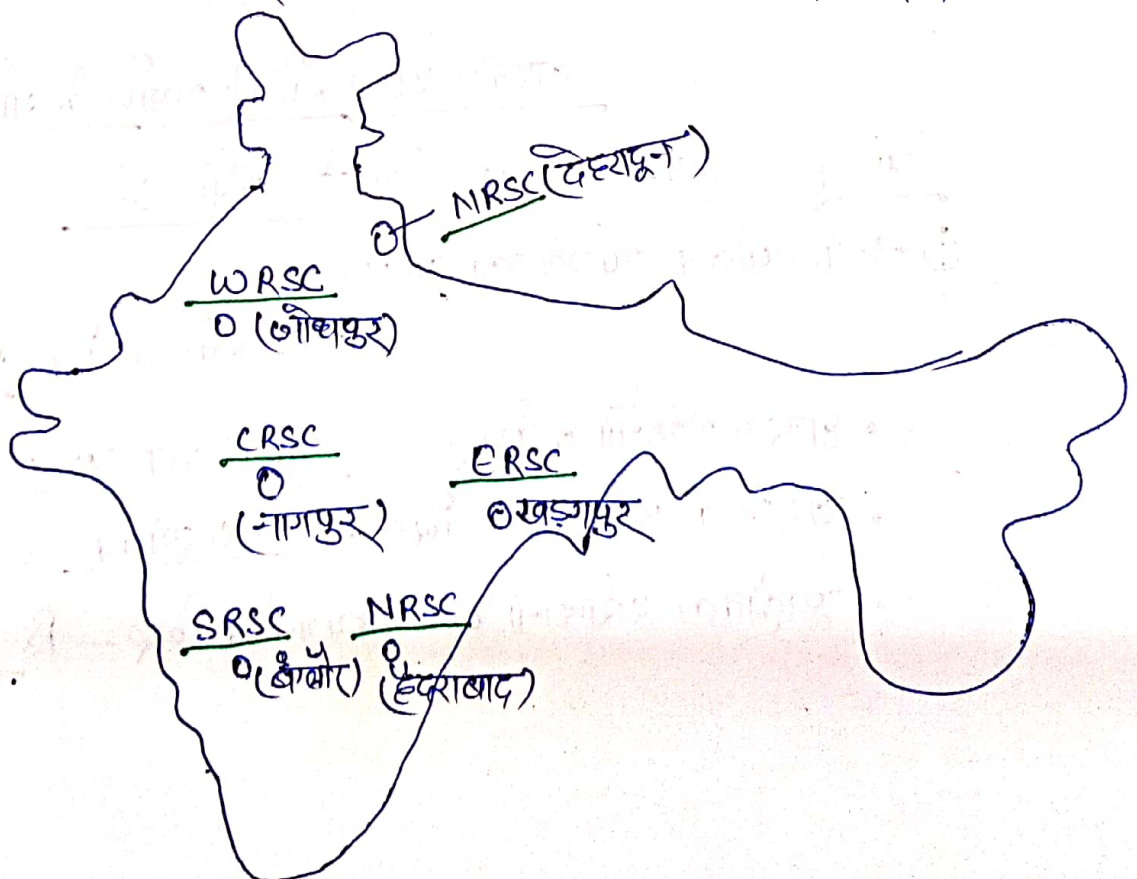 NRSC (देहरादून)
WRSC
(जोधपुर)
CRSC
(नागपुर)
ERSC
खड़गपुर
SRSC
(बंग्लौर)
NRSC
(हैदराबाद)